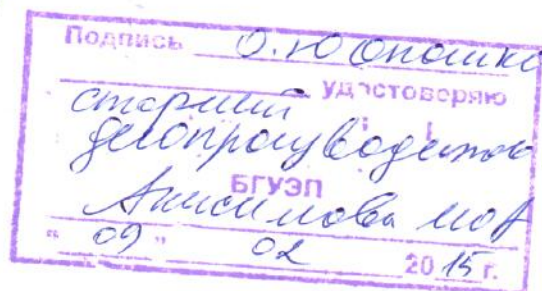 Подпись О.Ю Опошко
удостоверяю
старший
делопроизводитель
БГУЭП
Анисимова
" 09 " 02 2015 г.